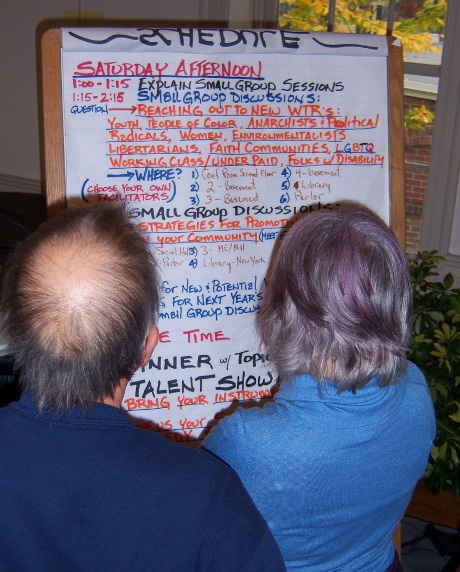 SCHEDULE
SATURDAY AFTERNOON
1:00-1:15 EXPLAIN SMALL GROUP SESSIONS
1:15-2:15 SMALL GROUP DISCUSSIONS:
QUESTION → REACHING OUT TO NEW WTR'S:
YOUTH, PEOPLE OF COLOR, ANARCHISTS & POLITICAL
RADICALS, WOMEN, ENVIRONMENTALISTS
LIBERTARIANS, FAITH COMMUNITIES, LGBTQ
WORKING CLASS/UNDER PAID, FOLKS W/ DISABILITY
→ WHERE? 1) Conf Room Second Floor 4) 4-Basement
(CHOOSE YOUR OWN FACILITATORS) 2) 2-Basement 5) Library
3) 3-Basement 6) Parlor
SMALL GROUP DISCUSSIONS:
STRATEGIES FOR PROMOT
N YOUR COMMUNITY (MEET
Social Hall 3) 3-ME/NH
Parlor 4) Library-New York
FOR NEW & POTENTIAL W
G FOR NEXT YEAR'S
SMALL GROUP DISCUS
E TIME
INNER W/ TOPI
TALENT SHOW
BRING YOUR INSTRUM
NEWS YOUR